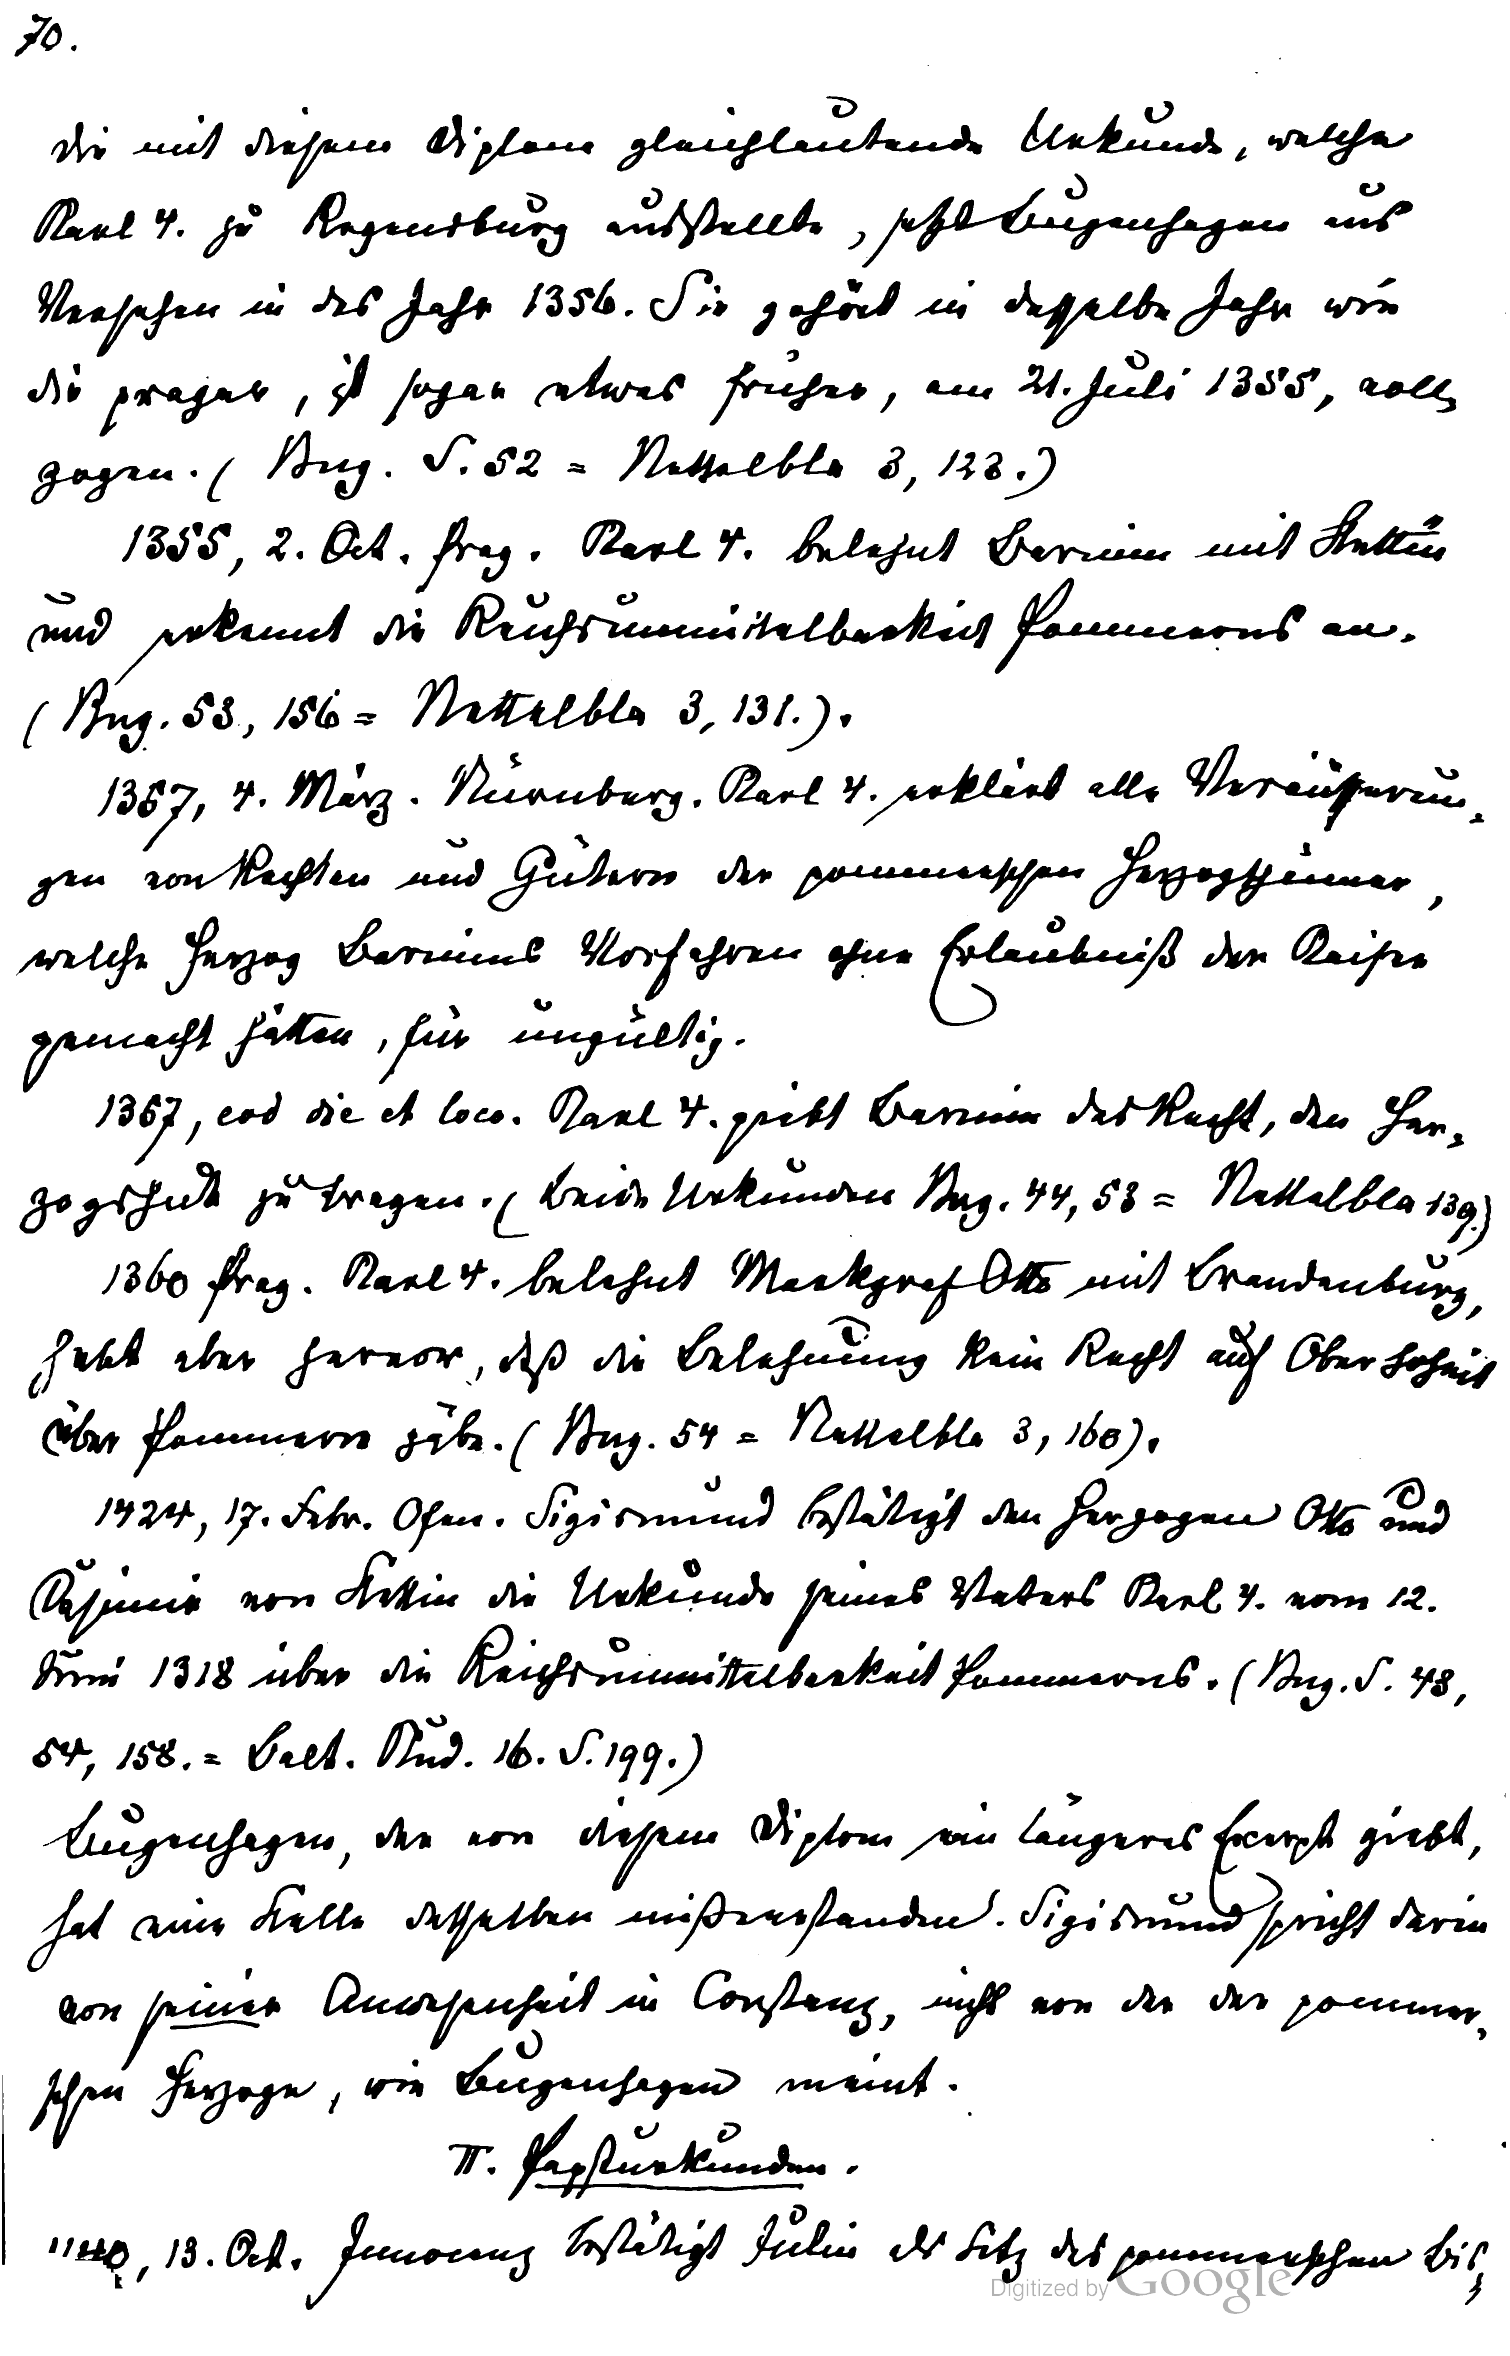 70.
Die mit diesem Diplom gleichlautende Urkunde, welche
Karl 4. zu Regensburg ausstellte, setzt Bugenhagen aus
Versehen in das Jahr 1356. Sie gehört in dasselbe Jahr wie
die prager, ist sogar etwas früher, am 21. Juli 1355, voll-
zogen. (Bug. S. 52 = Nettelbla 3, 123.)
1355, 2. Oct. Prag. Karl 4. belehnt Barnim mit Stettin
und erkennt die Reichsunmittelbarkeit Pommerns an.
(Bug. 53, 156 = Nettelbla 3, 131.).
1357, 4. März. Nürnberg. Karl 4. erklärt alle Veräußerun-
gen von Rechten und Gütern der pommerschen Herzogthümer,
welche Herzog Barnims Vorfahren ohne Erlaubniß der Kaiser
gemacht hätten, für ungültig.
1357, eod die et loco. Karl 4. giebt Barnim das Recht, den Her-
zogshut zu tragen. (Beide Urkunden Bug. 44, 53 = Nettelbla 139.)
1360 Prag. Karl 4. belehnt Markgraf Otto mit Brandenburg,
hebt aber hervor, daß die Belehnung kein Recht auf Oberhoheit
über Pommern gäbe. (Bug. 54 = Nettelbla 3, 160).
1424, 17. Febr. Ofen. Sigismund bestätigt den Herzogen Otto und
Casimir von Stettin die Urkunde seines Vaters Karl 4. vom 12.
Juni 1318 über die Reichsunmittelbarkeit Pommerns. (Bug. S. 48,
54, 158. = Balt. Stud. 16. S. 199.)
Bugenhagen, der von diesem Diplom ein längeres Excerpt giebt,
hat eine Stelle desselben mißverstanden. Sigismund spricht darin
von seiner Anwesenheit in Constanz, nicht von der der pommer-
schen Herzoge, wie Bugenhagen meint.
II. Papsturkunden.
1140, 13. Oct. Innocenz bestätigt Julin als Sitz des pommerschen Bis-
Digitized by Google